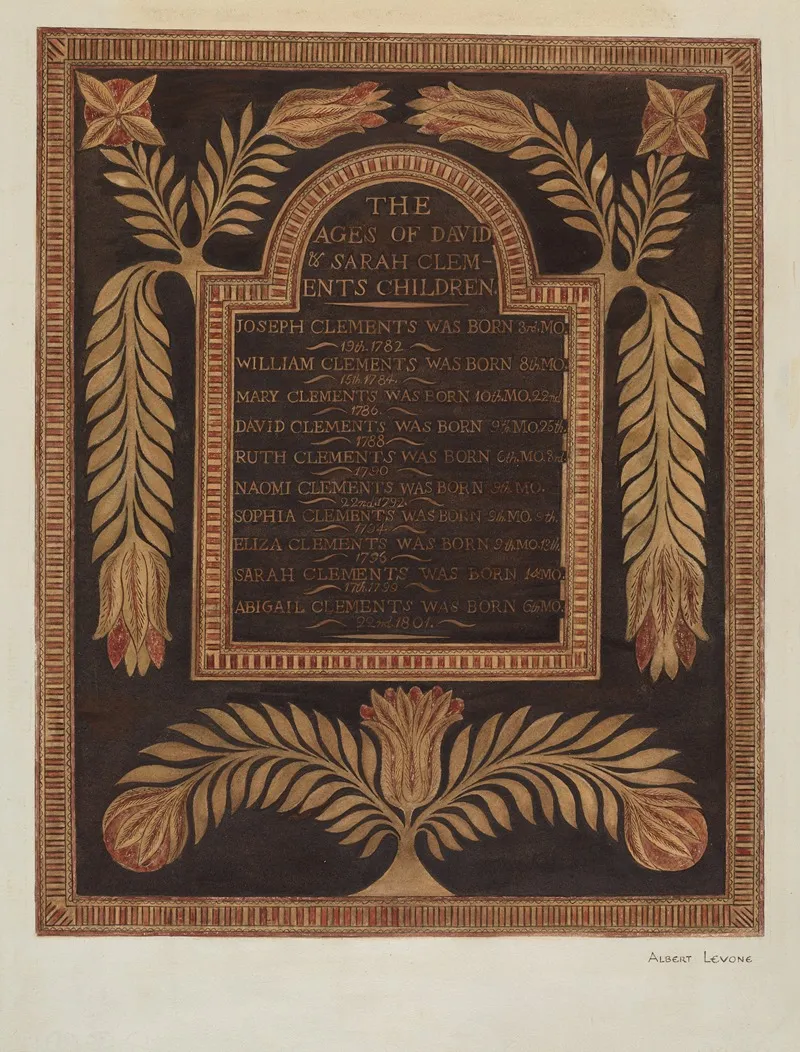 THE
AGES OF DAVID
& SARAH CLEM-
ENTS CHILDREN.
JOSEPH CLEMENTS WAS BORN 3rd.MO.
19th.1782
WILLIAM CLEMENTS WAS BORN 8th.MO.
15th.1784.
MARY CLEMENTS WAS BORN 10th.MO.22nd
1786.
DAVID CLEMENTS WAS BORN MO.25th.
1788
RUTH CLEMENTS WAS BORN 6th.MO.3rd.
1790
NAOMI CLEMENTS WAS BORN MO.
22nd.1792.
SOPHIA CLEMENTS WAS BORN MO.
ELIZA CLEMENTS WAS BORN 9th.MO.12th.
1796
SARAH CLEMENTS WAS BORN 1st.MO.
17th.1799
ABIGAIL CLEMENTS WAS BORN 6th.MO.
22nd.1801.
ALBERT LEVONE